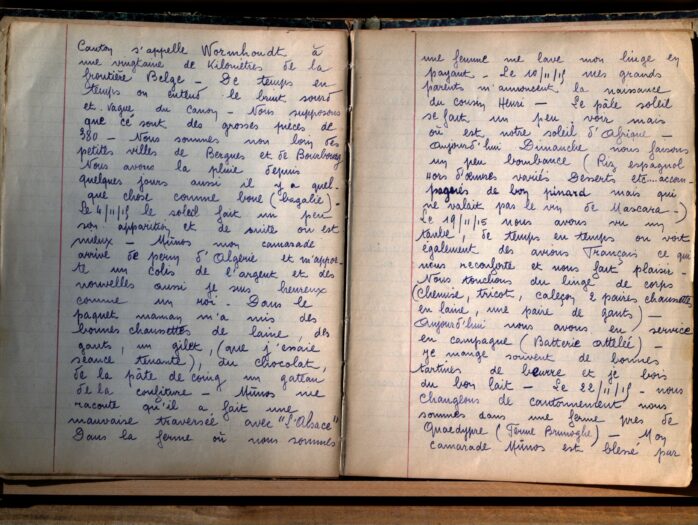 Canton s'appelle Wormhoudt à
une vingtaine de Kilomètres de la
frontière Belge - De temps en
temps on entend le bruit sourd
et vague du canon - Nous supposons
que ce sont des grosses pièces de
380 - Nous sommes non loin des
petites villes de Bergues et de Bourbourg
Nous avons la pluie depuis
quelques jours aussi il y a quel-
que chose comme boue (bagalie) -
Le 4/11/15 le soleil fait un peu
son apparition et de suite on est
mieux - Münos mon camarade
arrive de perm d'Algérie et m'appor-
te un colis de l'argent et des
nouvelles aussi je suis heureux
comme un roi - Dans le
paquet maman m'a mis des
bonnes chaussettes de laine, des
gants, un gilet, (que j'essaie
séance tenante), du chocolat,
de la pâte de coing un gateau
de la confiture - Münos me
raconte qu'il a fait une
mauvaise traversée avec "L'Alsace"
Dans la ferme où nous sommes
une femme me lave mon linge en
payant - Le 10/11/15 mes grands
parents m'annoncent la naissance
du cousin Henri - Le pâle soleil
se fait un peu voir mais
où est notre soleil d'Afrique -
Aujourd'hui Dimanche nous faisons
un peu bombance (Riz espagnol
Hors d'œuvres variés Desserts etc.... accom
pagnés de bon pinard mais qui
ne valait pas le vin de Mascara -)
Le 19/11/15 nous avons vu un
taube, de temps en temps on voit
également des avions Français ce qui
nous réconforte et nous fait plaisir -
Nous touchons du linge de corps
(Chemise, tricot, caleçon 2 paires chaussettes
en laine, une paire de gants) -
Aujourd'hui nous avons eu service
en campagne (Batterie attelée) -
Je mange souvent de bonnes
tartines de beurre et je bois
du bon lait - Le 22/11/15 - nous
changeons de cantonnement nous
sommes dans une ferme près de
Quaedypre (Ferme) - Mon
camarade Münos est blessé par